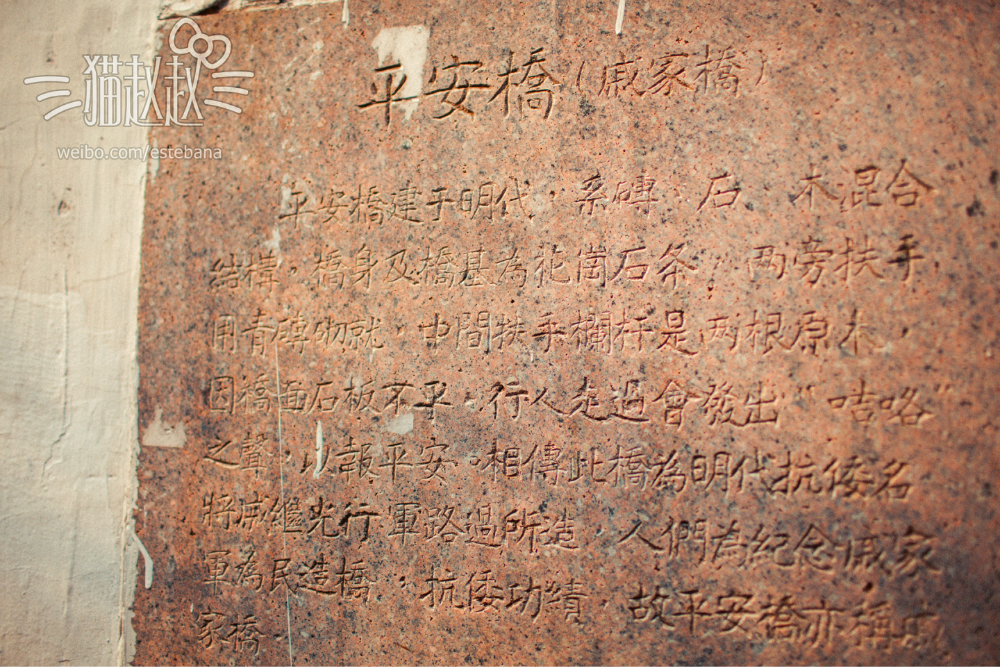 猫赵赵
weibo.com/estebana
平安橋（戚家橋）
平安橋建于明代，系磚、石、木混合
結構，橋身及橋基為花崗石条，两旁扶手
用青磚砌就，中間扶手欄杆是两根原木，
因橋面石板不平，行人走過會發出“咭咯”
之聲，以報平安。相傳此橋為明代抗倭名
將戚繼光行軍路過所造，人們為紀念戚家
軍為民造橋，抗倭功績，故平安橋亦稱戚
家橋。